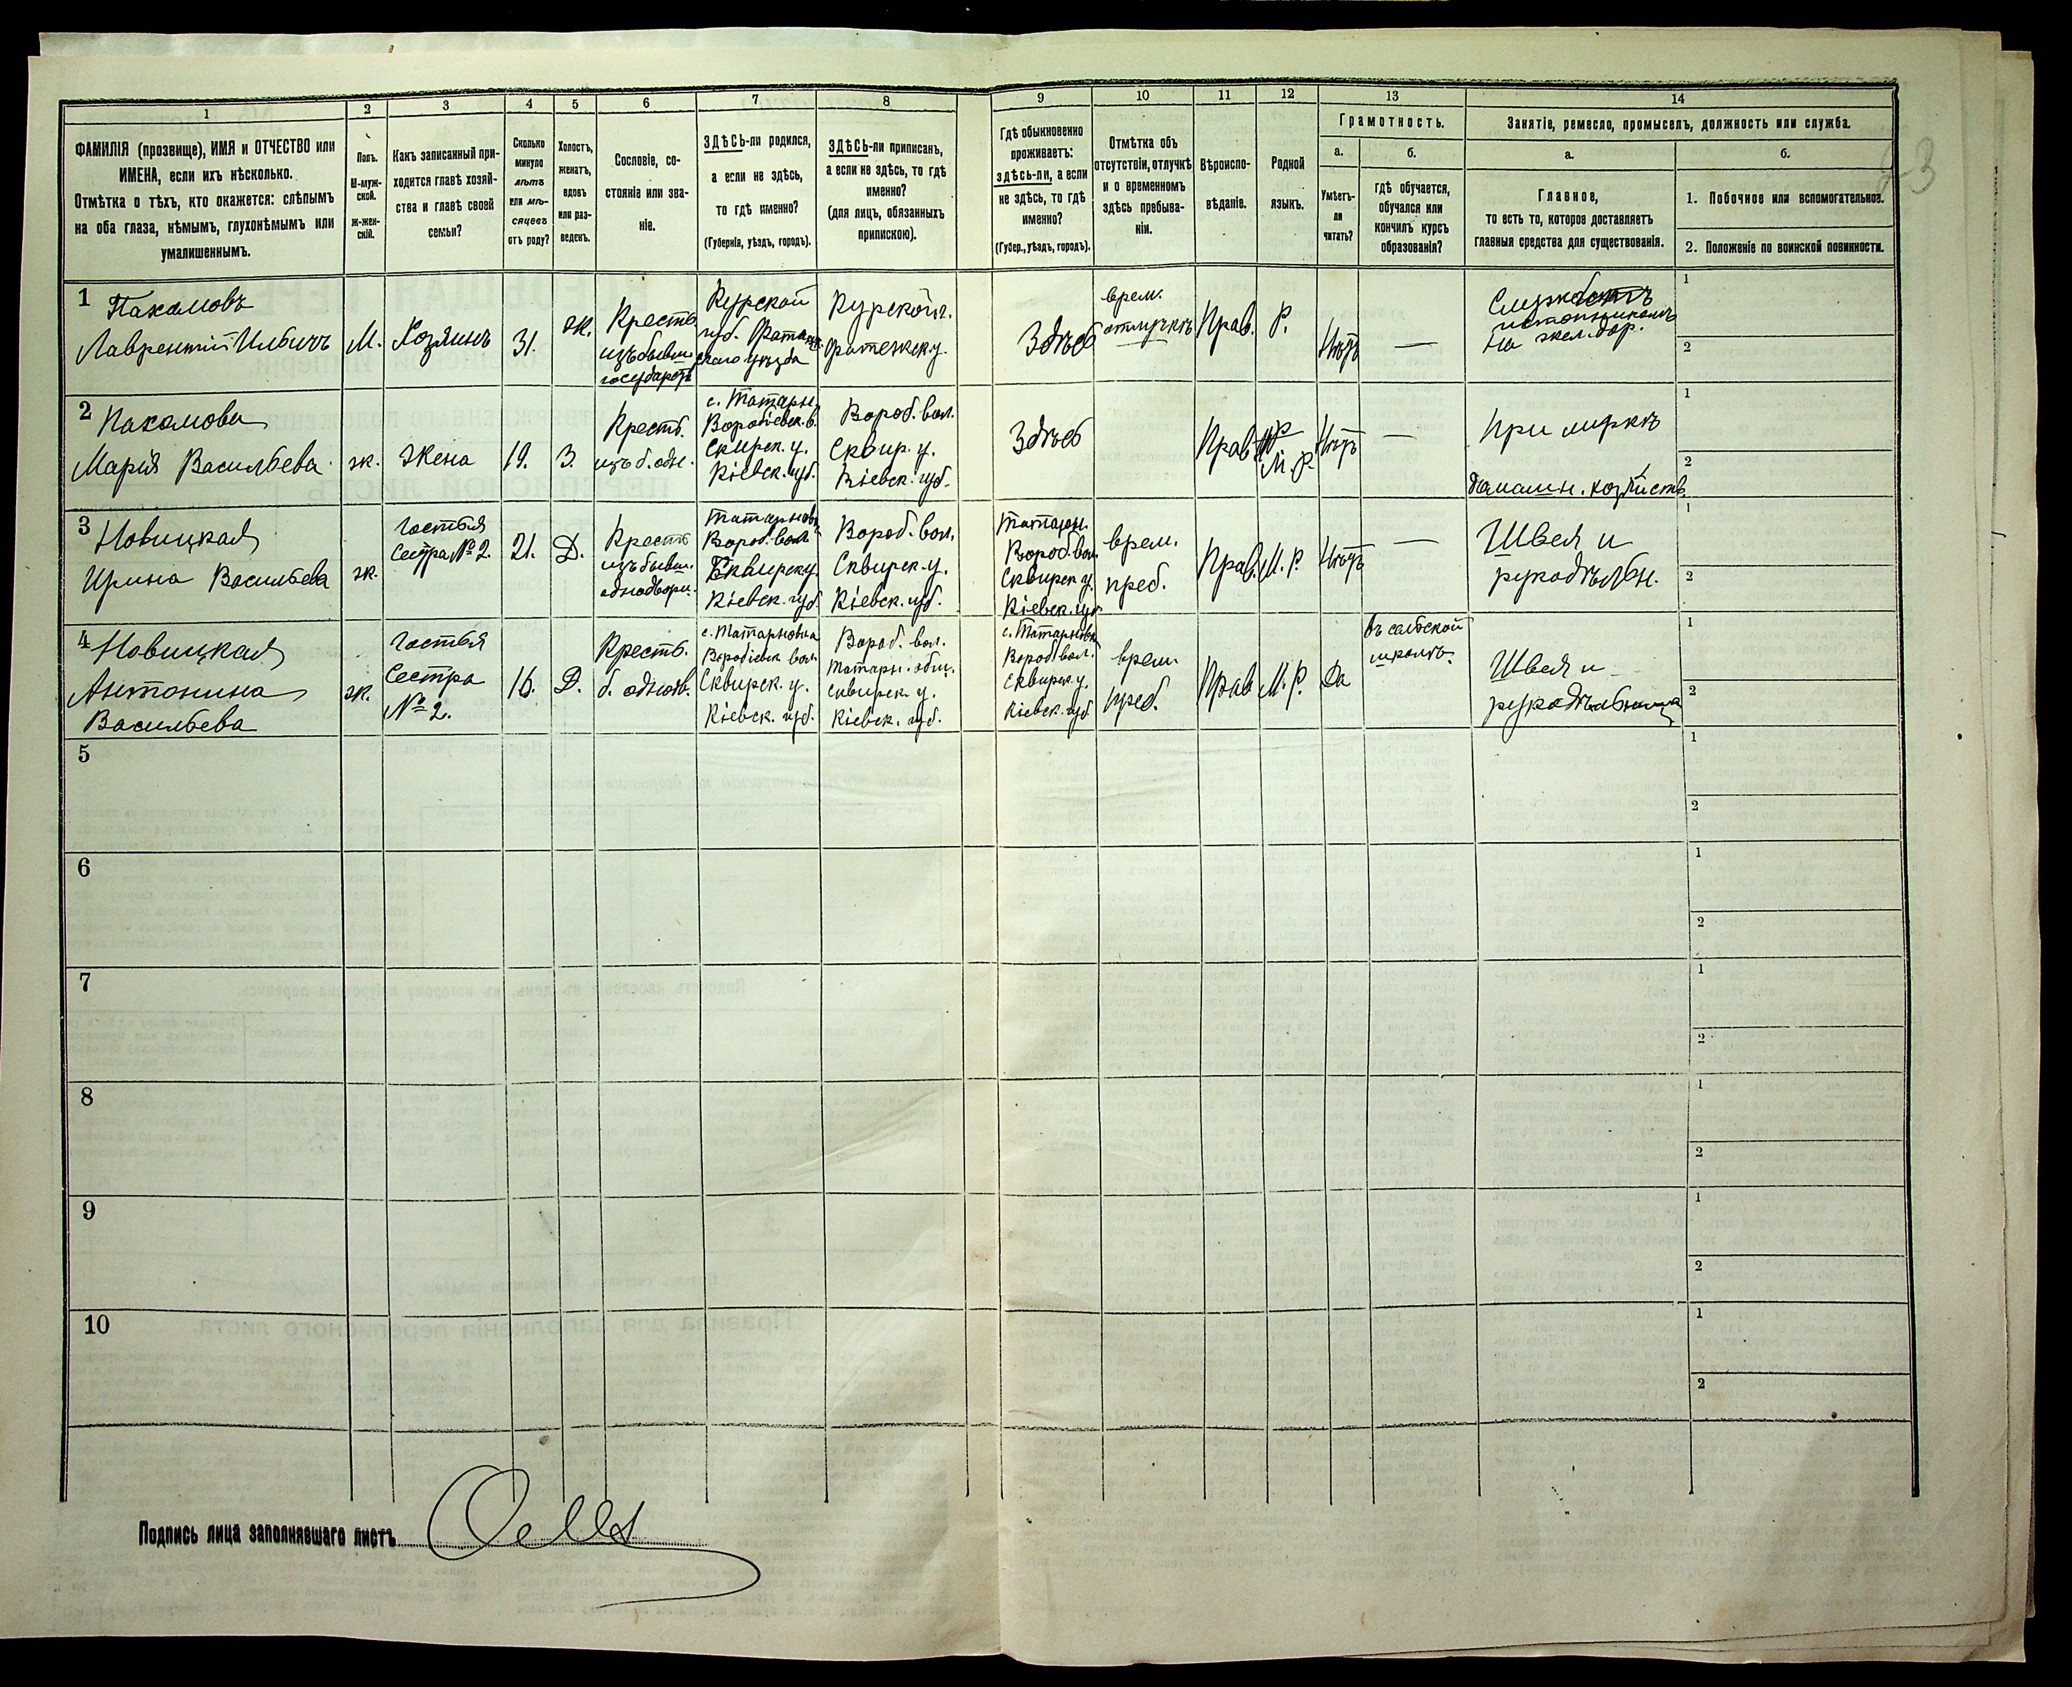 1 2 3 4 5. 6 7 8 9 10 11 12 13 14
ФАМИЛІЯ (прозвище), ИМЯ и ОТЧЕСТВО или
ИМЕНА, если ихъ нѣсколько.
Отмѣтка о тѣхъ, кто окажется: слѣпымъ
на оба глаза, нѣмымъ, глухонѣмымъ или
умалишеннымъ.
Полъ.
М-муж-
ской.
ж-жен-
скій.
Какъ записанный при-
ходится главѣ хозяй-
ства и главѣ своей
семьи?
Сколько
минуло
лѣтъ
или мѣ-
сяцевъ
отъ роду?
Холостъ,
женатъ,
вдовъ
или раз-
веденъ.
Сословіе, со-
стояніе или зва-
ніе.
ЗДѢСЬ-ли родился,
а если не здѣсь,
то гдѣ именно?
(Губернія, уѣздъ, городъ).
ЗДѢСЬ-ли приписанъ,
а если не здѣсь, то гдѣ
именно?
(для лицъ, обязанныхъ
припискою).
Гдѣ обыкновенно
проживаетъ:
здѣсь-ли, а если
не здѣсь, то гдѣ
именно?
(Губер., уѣздъ, городъ).
Отмѣтка объ
отсутствіи, отлучкѣ
и о временномъ
здѣсь пребыва-
ніи.
Вѣроиспо-
вѣданіе.
Родной
языкъ.
Грамотность.
а.
Умѣетъ-
ли
читать?
б.
гдѣ обучается,
обучался или
кончилъ курсъ
образованія?
Занятіе, ремесло, промыселъ, должность или служба.
а.
Главное,
то есть то, которое доставляетъ
главныя средства для существованія.
б.
1. Побочное или вспомогательное.
2. Положеніе по воинской повинности.
23
1 Пахомовъ
Лаврентій Ильичъ
М.
Хозяинъ
31.
ж.
Крестъ.
изъ бывш.
государств.
Курской
губ. Фатеж-
скаго уѣзда
Курской г.
Фатежск. у.
Здѣсь
врем.
отлучкѣ
Прав.
Р.
Нѣтъ
—
на жел. дор.
1
2
2 Пахомова
Марія Васильева.
ж.
Жена
19.
З.
Крестъ.
изъ б. одн.
с. Татарн.
Воробіевск. в.
Сквирск. у.
Кіевск. губ.
Вороб. вол.
Сквир. у.
Кіевск. губ.
Здѣсь
Прав.
М. Р.
Нѣтъ
—
При мужѣ
домашн. хозяйств.
1
2
3 Новицкая
Ирина Васильева
ж.
Гостья
Сестра № 2.
21.
Д.
Крестъ
изъ бывш.
однодворц.
Татарновк.
Вороб. вол.
Сквирск у.
Кіевск. губ.
Вороб. вол.
Сквирск. у.
Кіевск. губ.
Татарн.
Вороб. вол.
Сквирск у.
Кіевск. губ.
врем.
преб.
Прав.
М. Р.
Нѣтъ
—
Швея и
рукодѣльн.
1
2
4 Новицкая
Антонина
Васильева
ж.
Гостья
Сестра
№ 2.
16.
Д.
Крестъ.
б. однодв.
с. Татарновка
Воробіевск вол.
Сквирск. у.
Кіевск. губ.
Вороб. вол.
Татарн. общ.
Сквирск. у.
Кіевск. губ.
с. Татарновк.
Вороб. вол.
Сквирск у.
Кіевск. губ
врем.
преб.
Прав
М. Р.
Да
въ сельской
школѣ.
Швея и
рукодѣльница
1
2
5
1
2
6
1
2
7
1
2
8
1
2
9
1
2
10
1
2
Подпись лица заполнявшаго листъ